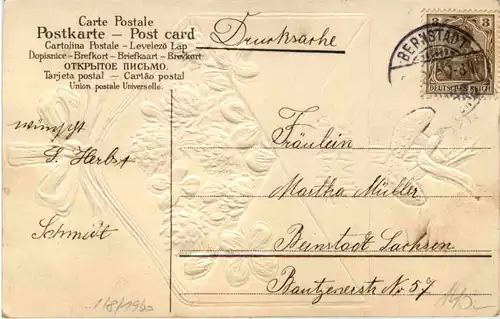 Carte Postale
Postkarte – Post card
Cartolina Postale – Levelező Lap
Dopisnice – Brefkort – Briefkaart – Brevkort
ОТКРЫТОЕ ПИСЬМО.
Tarjeta postal – Cartão postal
Union postale Universelle.
Drucksache
3 3
DEUTSCHES REICH
BERNSTADT
wünscht
S. Herbst
Schmidt
Fräulein
Martha Müller
Beinstadt Sachsen
Bautzenerstr Nr. 57